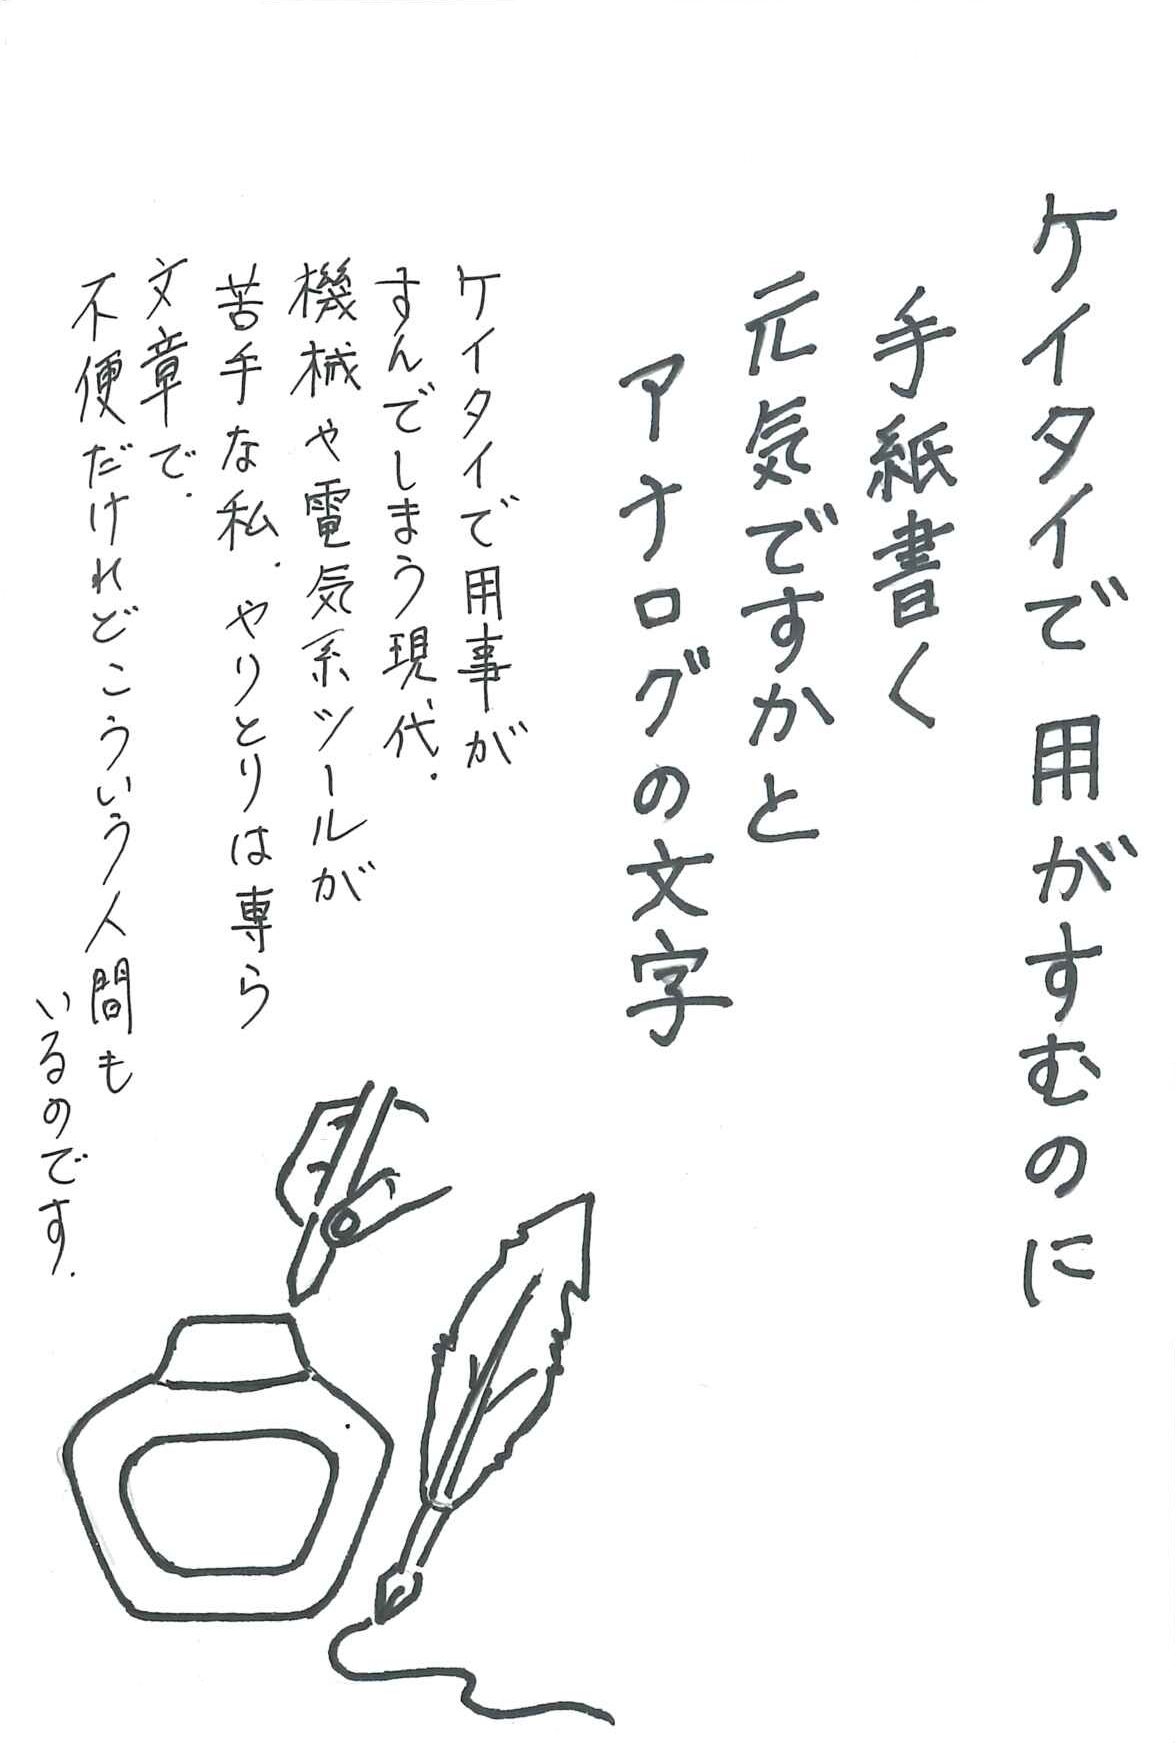 ケイタイで用がすむのに
手紙書く
元気ですかと
アナログの文字
ケイタイで用事が
すんでしまう現代.
機械や電気系ツールが
苦手な私.やりとりは専ら
文章で.
不便だけれどこういう人間も
いるのです.